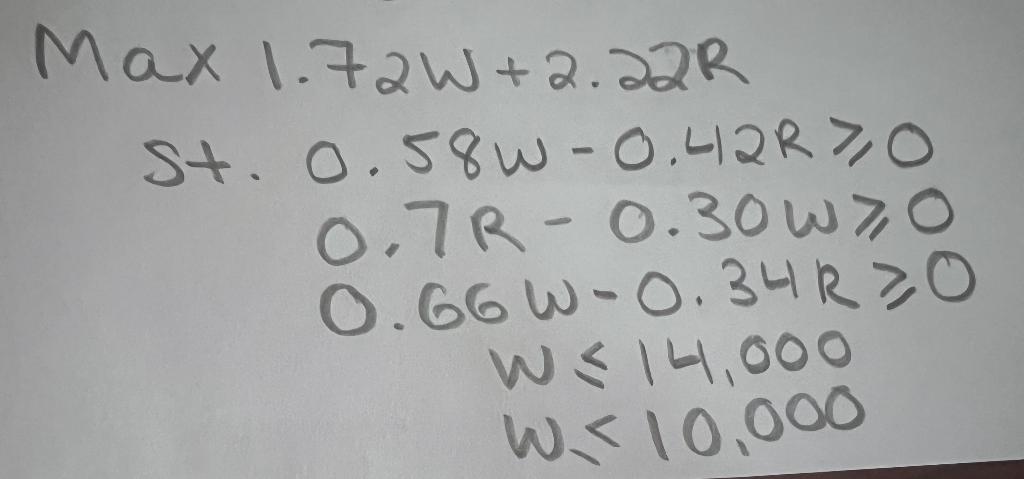 Max 1.72W + 2.22R
St. 0.58W - 0.42R ⩾ 0
0.7R - 0.30W ⩾ 0
0.66W - 0.34R ⩾ 0
W ⩽ 14,000
W ⩽ 10,000